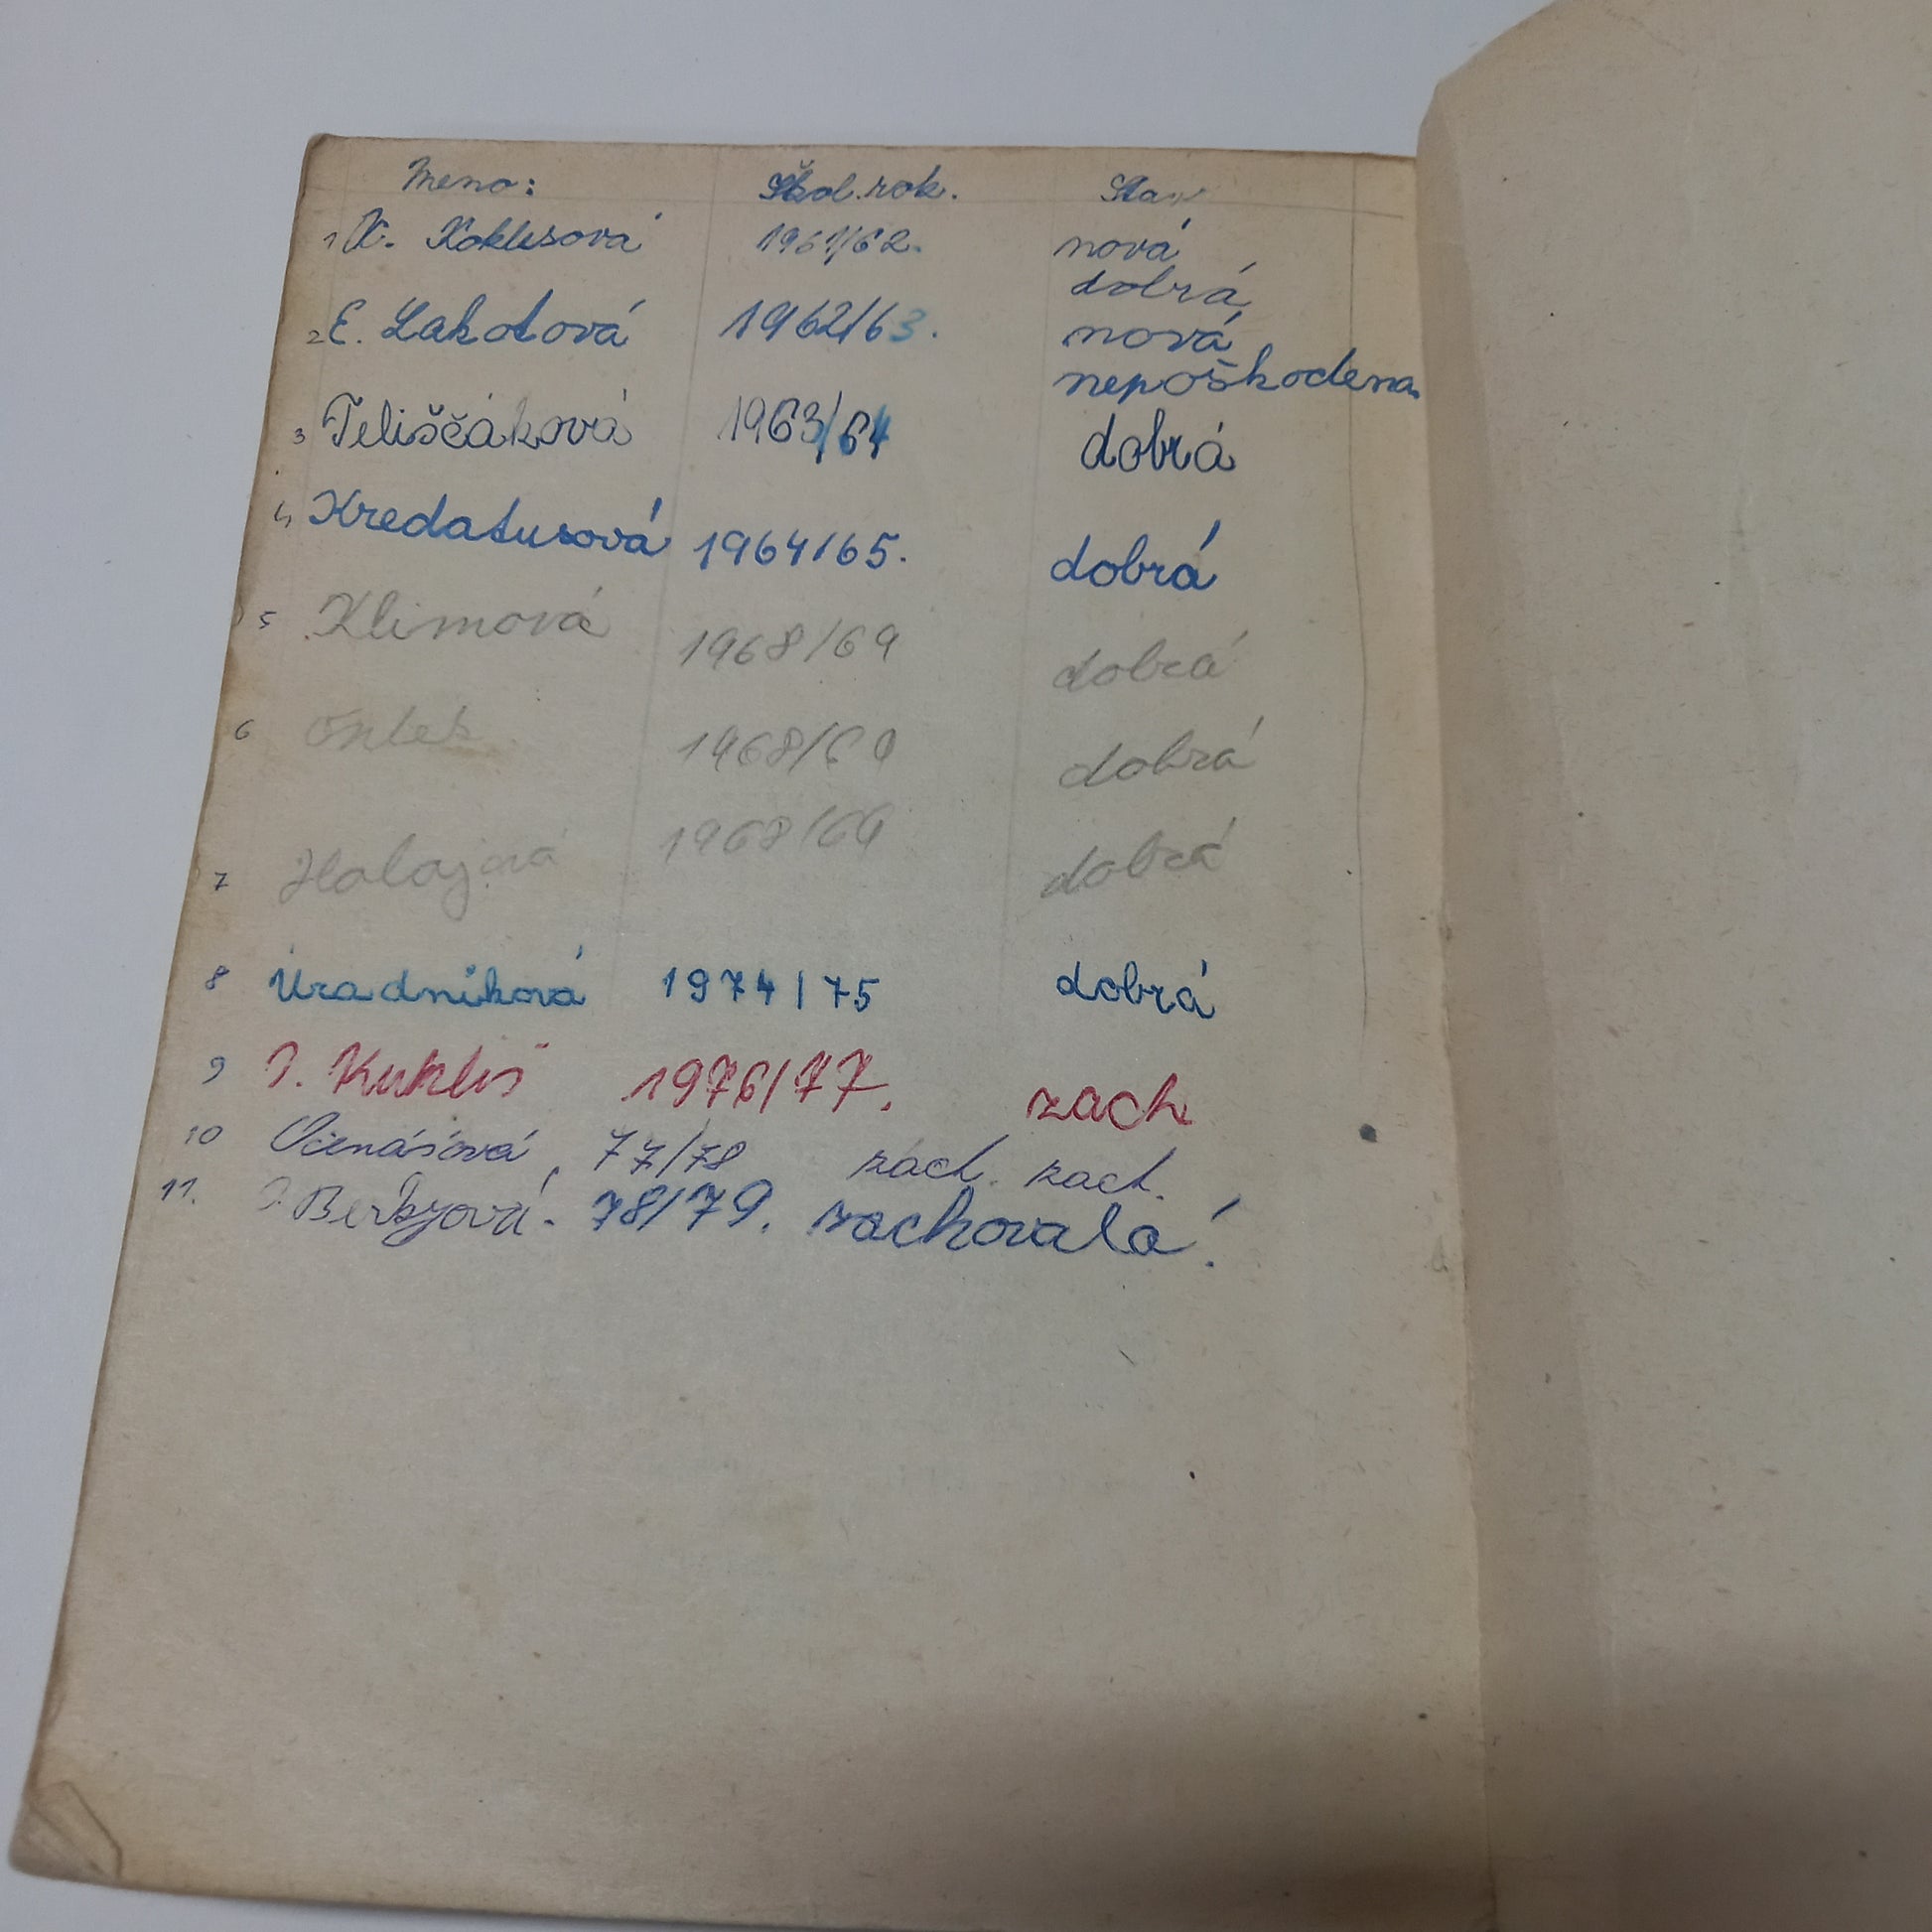 Meno: Škol. rok. Stav
1 K. Koklesová 1961/62. nová
dobrá
2 E. Lakotová 1962/63. nová
nepoškodena
3 Teliščáková 1963/64 dobrá
4 Kredatusová 1964/65. dobrá
5 Klimová 1968/69 dobrá
6 1968/69 dobrá
7 Halajová 1968/69 dobrá
8 Úradníková 1974/75 dobrá
9 J. Kukliš 1976/77. zach
10 Očenášová 77/78 zach. zach.
11. 78/79. zachovalá!